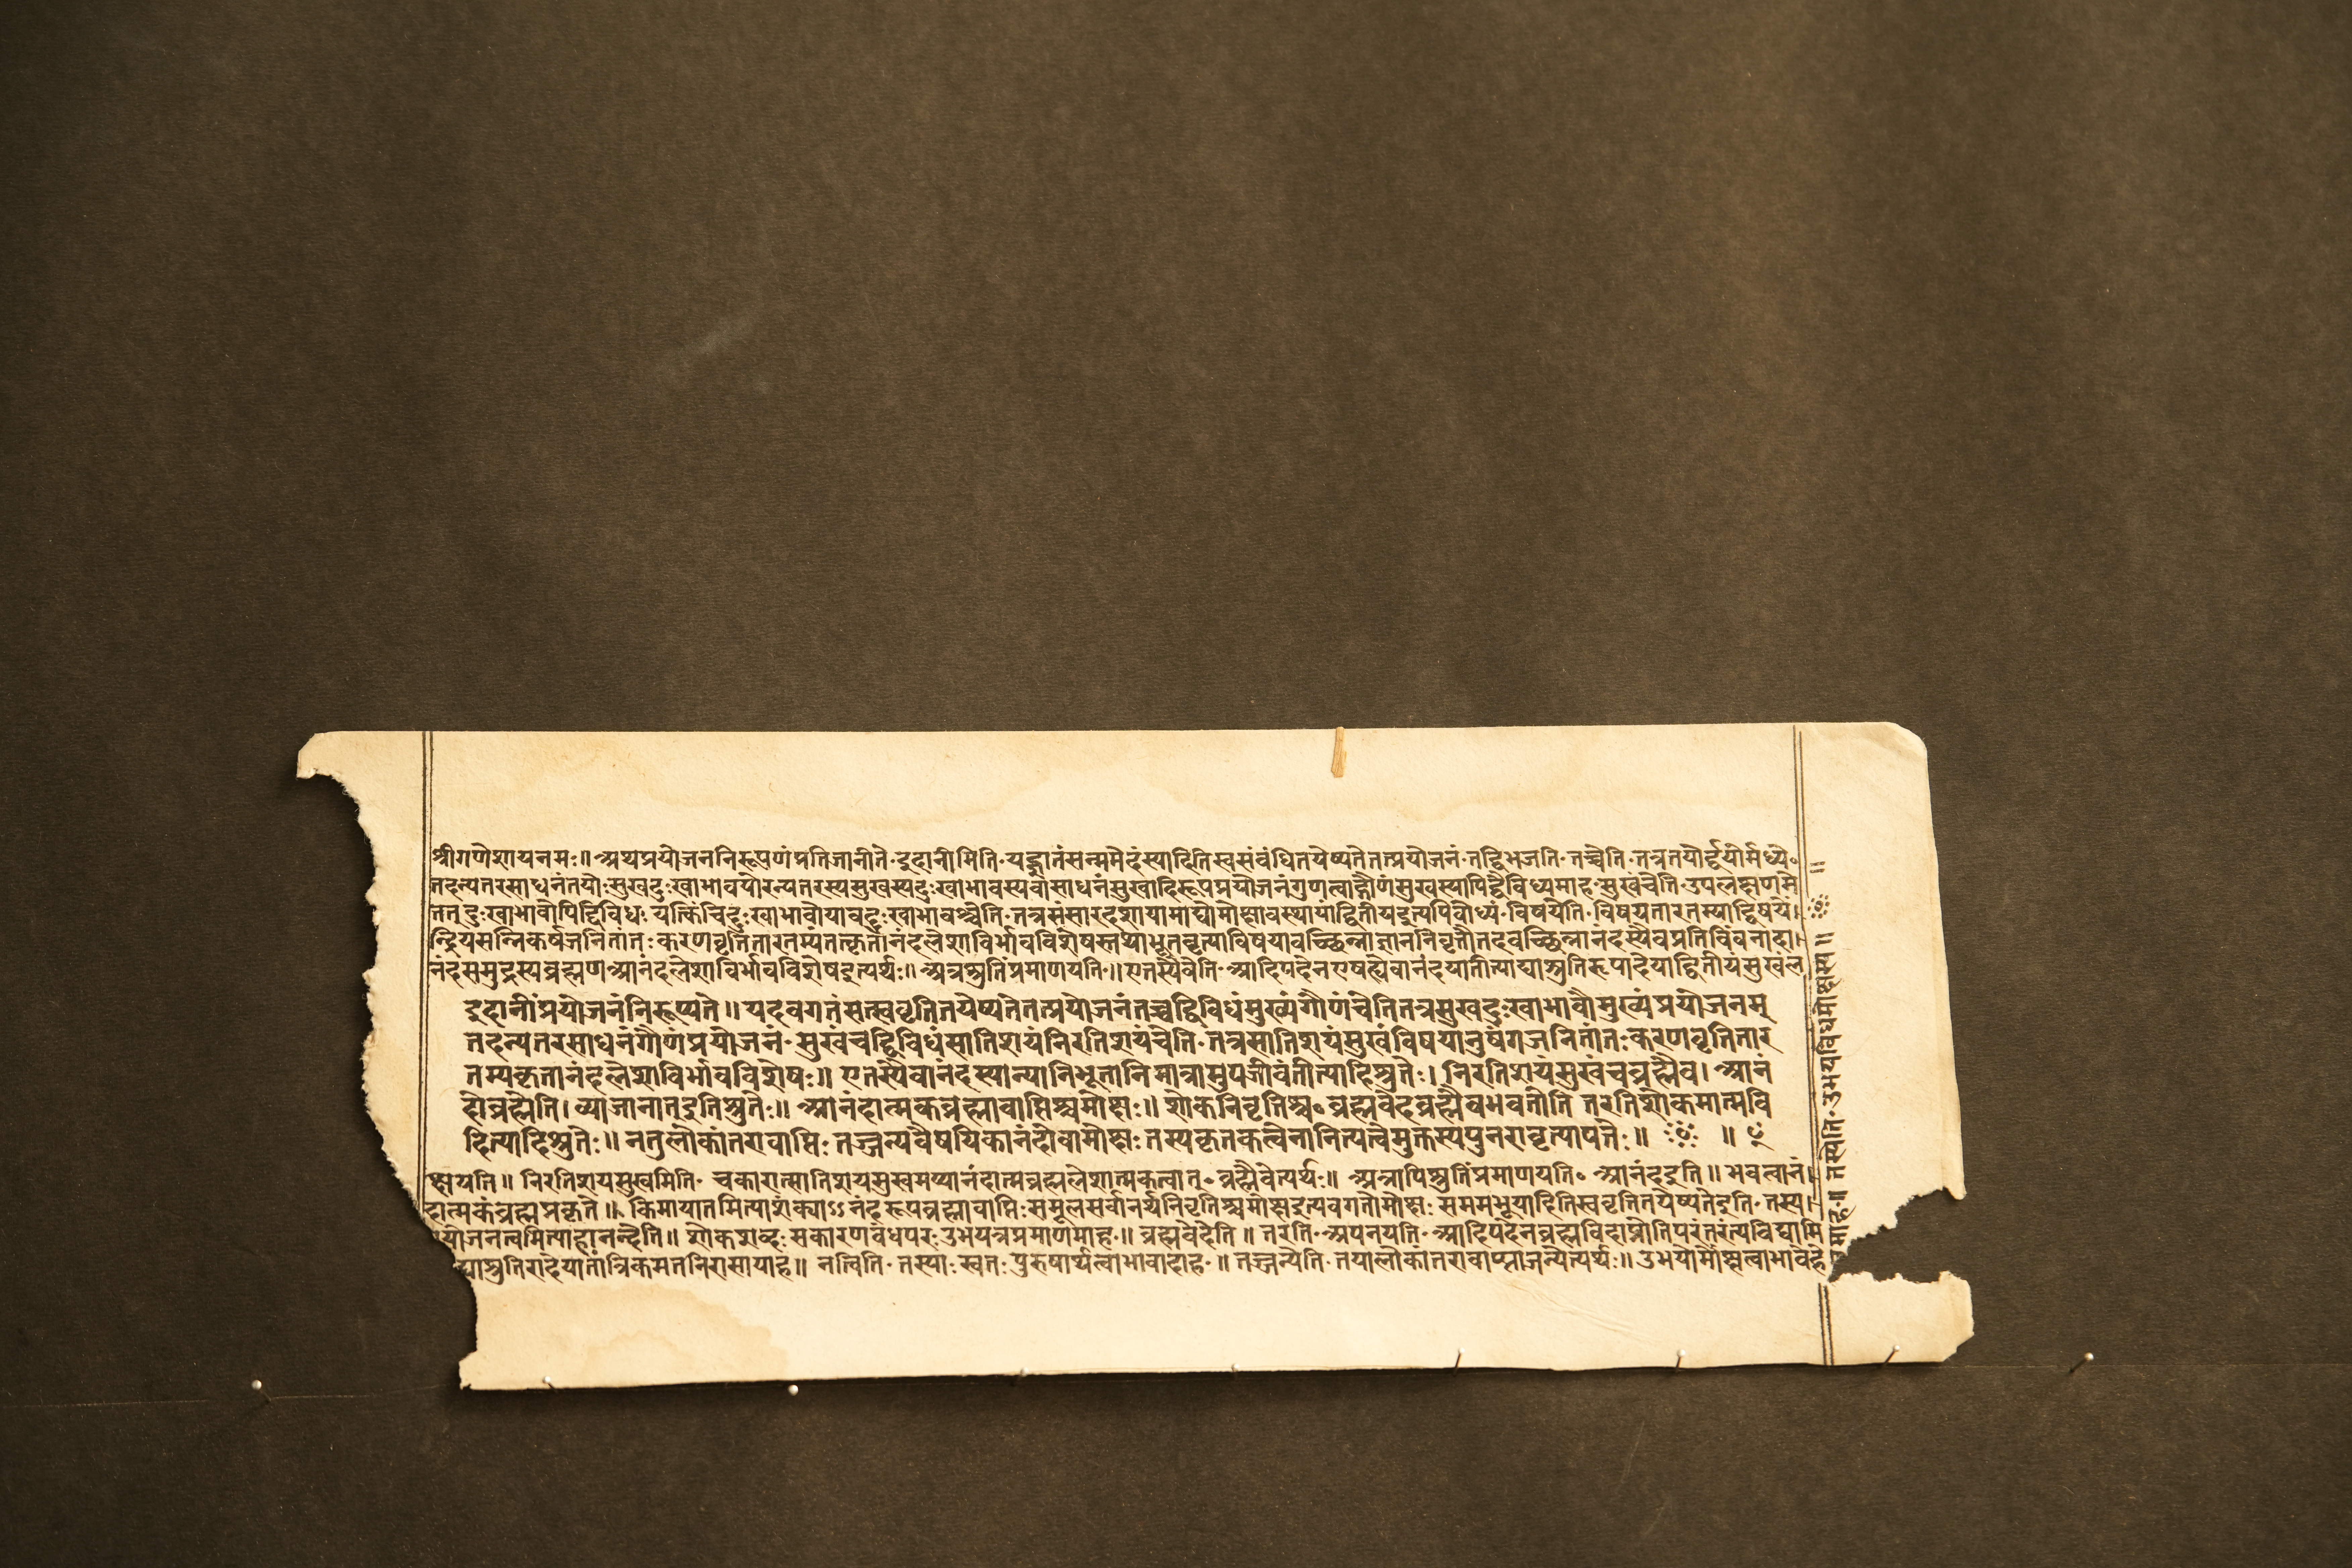 श्रीगणेशायनमः॥ अथप्रयोजननिरूपणंप्रतिजानीते॰इदानीमिति॰यद्ज्ञातंसन्ममेदंस्यादितिस्वसंबंधितयेष्यतेतत्प्रयोजनं॰तद्विभजति॰तच्चेति॰तत्रतयोर्द्वयोर्मध्ये॰
तदन्यतरसाधनंतयोःसुखदुःखाभावयोरन्यतरस्यसुखस्यदुःखाभावस्यवासाधनंसुखादिरूपप्रयोजनंगुणत्वाद्गौणंसुखस्यापिद्वैविध्यमाह॰सुखंचेति॰उपलक्षणमे
तत् दुःखाभावोपिद्विविधः यत्किंचिद्दुःखाभावोयावद्दुःखाभावश्चेति॰तत्रसंसारदशायामाद्योमोक्षावस्थायांद्वितीयइत्यपिबोध्यं॰विषयेति॰विषयतारतम्याद्विषये।
न्द्रियसन्निकर्षजनितांतःकरणवृत्तितारतम्यंतत्कृतानंदलेशाविर्भावविशेषस्तथाभूतवृत्त्याविषयावच्छिन्नाज्ञाननिवृत्तौतदवच्छिन्नानंदस्यैवप्रतिविंबनादा।
नंदसमुद्रस्यब्रह्मणआनंदलेशाविर्भावविशेषइत्यर्थः॥ अत्रश्रुतिंप्रमाणयति॰॥एतस्यैवेति॰आदिपदेनएषह्येवानंदयातीत्याद्याश्रुतिरूपादेयाद्वितीयंसुखंल
इदानींप्रयोजनंनिरूप्यते॥ यदवगतंसत्स्ववृत्तितयेष्यतेतत्प्रयोजनंतच्चद्विविधंमुख्यंगौणंचेतितत्रसुखदुःखाभावौमुख्यंप्रयोजनम्
तदन्यतरसाधनंगौणंप्रयोजनं॰सुखंचद्विविधंसातिशयंनिरतिशयंचेति॰तत्रसातिशयंसुखंविषयानुषंगजनितांतःकरणवृत्तितार
तम्यकृतानंदलेशाविर्भावविशेषः॥ एतस्यैवानंदस्यान्यानिभूतानिमात्रामुपजीवंतीत्यादिश्रुतेः। निरतिशयंसुखंचब्रह्मैव। आनं
दोब्रह्मेति।व्याजानातइतिश्रुतेः॥ आनंदात्मकब्रह्मावाप्तिश्चमोक्षः॥ शोकनिवृत्तिश्च॰ब्रह्मवेदब्रह्मैवभवतीति तरतिशोकमात्मवि
दित्यादिश्रुतेः॥ नतुलोकांतरावाप्तिः तज्जन्यवैषयिकानंदोवामोक्षः तस्यकृतकत्वेनानित्यत्वेमुक्तस्यपुनरावृत्त्यापत्तेः॥ ॥
क्षयति॥ निरतिशयसुखमिति॰ चकारात्सातिशयसुखमप्यानंदात्मब्रह्मलेशात्मकत्वात्॰ब्रह्मैवेत्यर्थः॥ अत्रापिश्रुतिंप्रमाणयति॰ आनंदइति॥ भवत्वानं।
दात्मकंब्रह्मप्रकृते॥ किमायातमित्याशंक्याऽऽनंदरूपब्रह्मावाप्तिःसमूलसर्वानर्थनिवृत्तिश्चमोक्षइत्यवगतौमोक्षः सममभूयादितिस्ववृत्तितयेष्यतेइति॰तस्या।
योजनत्वमित्याहानन्देति॥ शोकशब्दःसकारणबंधपरःउभयत्रप्रमाणमाह॰॥ ब्रह्मवेदेति॥ तरति॰अपनयति॰आदिपदेनब्रह्मविदाप्नोतिपरंतरत्यविद्यामि
द्याश्रुतिरादेयातांत्रिकमतनिरासायाह॥ नत्विति॰तस्याःस्वतःपुरुषार्थत्वाभावादाह॰॥ तज्जन्येति॰तयालोकांतरावाप्त्याजन्येत्यर्थः॥ उभयोर्मोक्षत्वाभावेहे
माह॰॥ तस्येति॰उभयविधमोक्षस्य॥ ॥